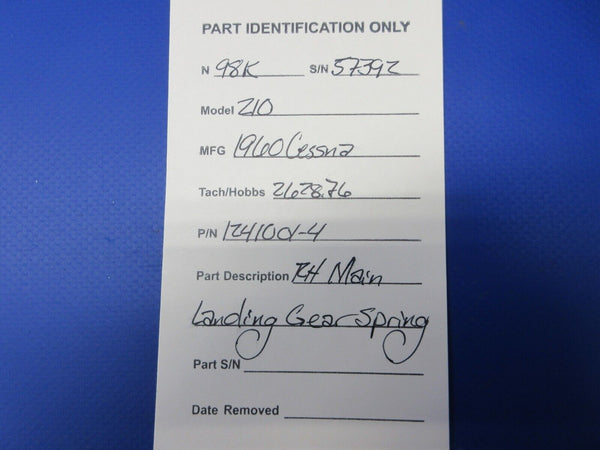 PART IDENTIFICATION ONLY
N 98K S/N 57392
Model 210
MFG 1960 Cessna
Tach/Hobbs 2628.76
P/N 1241001-4
Part Description RH Main
Landing Gear Spring
Part S/N
Date Removed